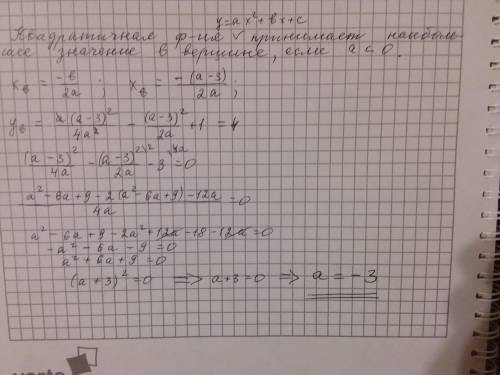 y=ax²+bx+c
Квадратичная ф-ия √ принимает наиболь
шее значение в вершине, если a<0.
x_в = -b/2a ; x_в = -(a-3)/2a ;
y_в = a(a-3)²/4a² - (a-3)²/2a + 1 = 4
(a-3)²/4a - (a-3)²\²/2a - 3\⁴ᵃ = 0
a²-6a+9-2(a²-6a+9)-12a/4a = 0
a²-6a+9-2a²+12a-18-12a=0
-a²-6a-9=0
a²+6a+9=0
(a+3)²=0 ⇒ a+3=0 ⇒ a=-3